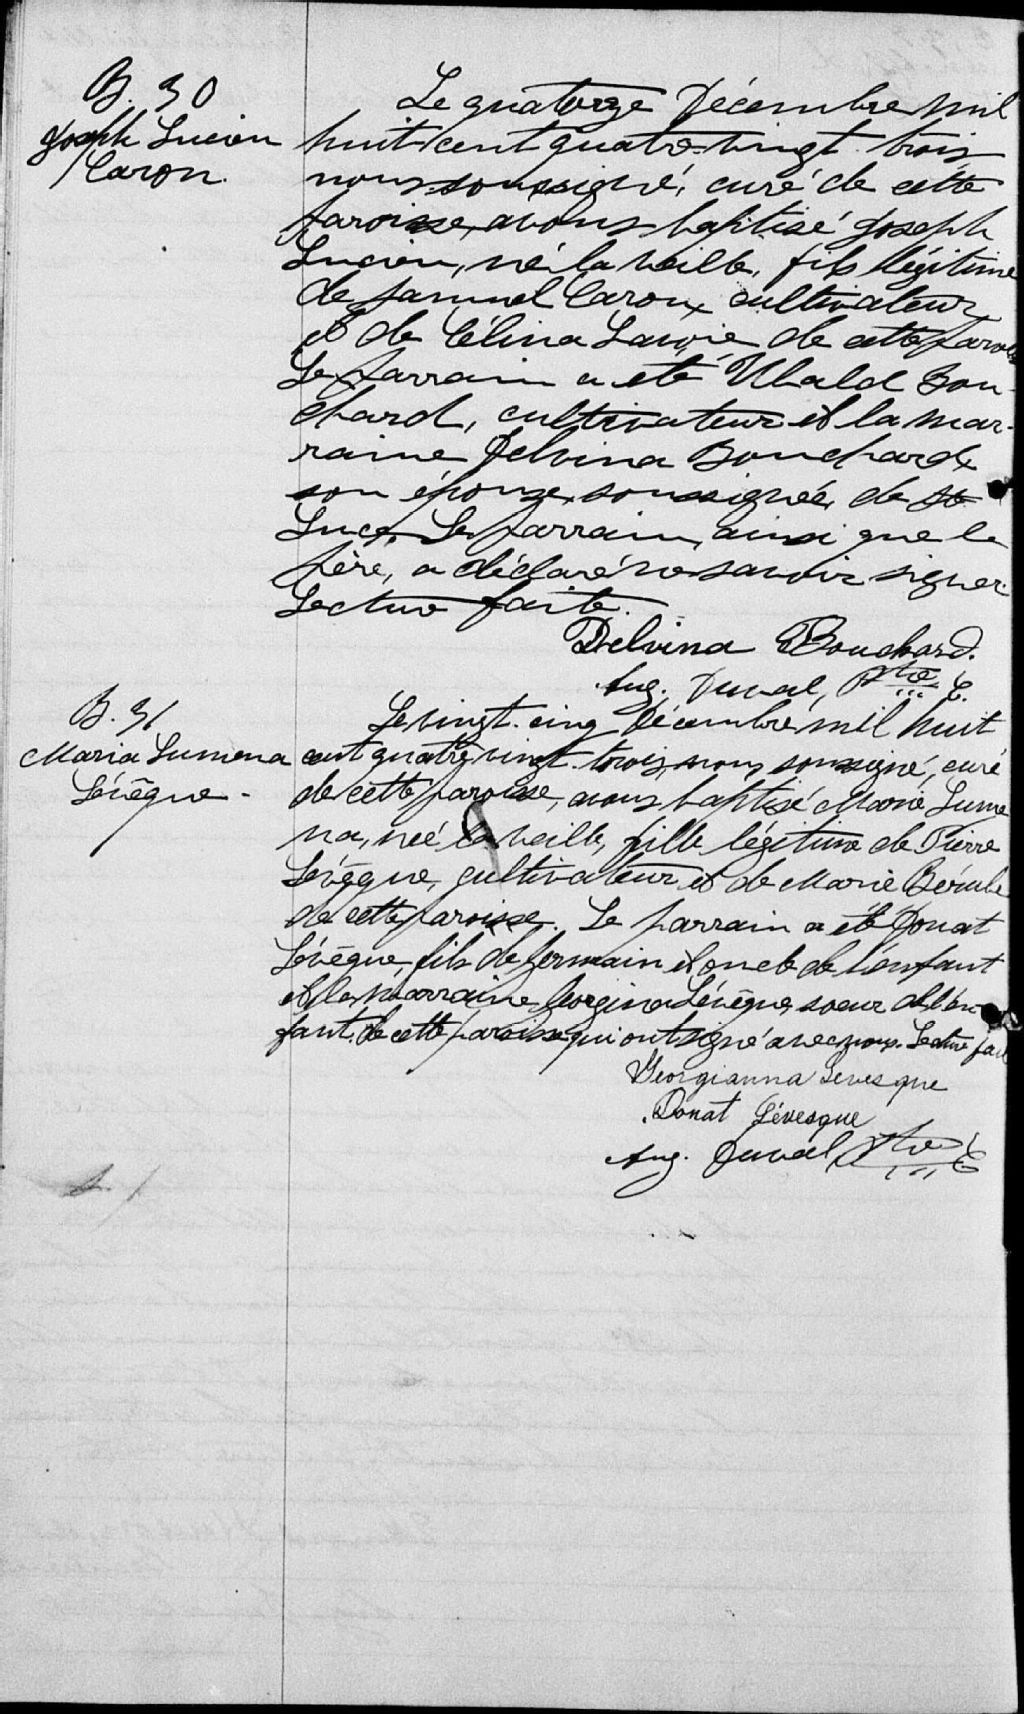 B. 30
Joseph Lucien
Caron.
Le quatorze Décembre mil
huit cent quatre-vingt trois
nous soussigné, curé de cette
paroisse, avons baptisé Joseph
Lucien, né la veille, fils légitime
de Samuel Caron, cultivateur
et de Célina Lavoie de cette paroisse
Le parrain a été Ubald Bou-
chard, cultivateur et la mar-
raine Delvina Bouchard
son épouse, soussignée, de Ste
Luce, Le parrain, ainsi que le
père, a déclaré ne savoir signer.
Lecture faite.
Delvina Bouchard.
Aug. Duval, Ptre C.
B. 31
Maria Lumena
Lévêque.
Le vingt-cinq Décembre mil huit
cent quatre vingt-trois, nous, soussigné, curé
de cette paroisse, avons baptisé Marie Lume
na, née la veille, fille légitime de Pierre
Lévêque, cultivateur et de Marie Bérubé
de cette paroisse. Le parrain a été Donat
Lévêque, fils de Germain et oncle de l'enfant
et la marraine Georgina Lévêque, soeur de l'en
fant, de cette paroisse qui ont signé avec nous. Lecture faite
Georgianna Levesque
Donat Lévesque
Aug. Duval, Ptre C